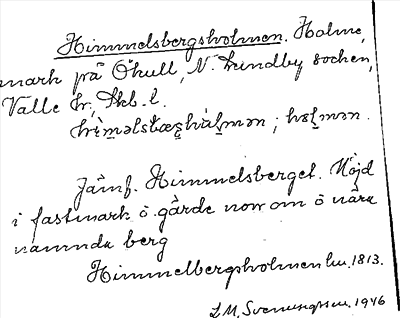 Himmelsbergsholmen. Holme,
mark på Öhull, N. Lundby socken,
Valle hr, Skb. l.
Jämf. Himmelsberget. Höjd
i fastmark ö. gärde norr om ö nära
namnda berg
Himmelbergsholmen lm. 1813.
L.M. Svennungsson. 1946